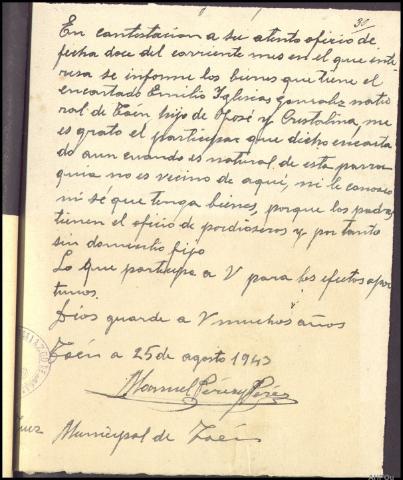 30
En contestacion a su atento oficio de
fecha doce del corriente mes en el que inte
resa se informe los bienes que tiene el
encartado Emilio Iglesias Gonzalez natu
ral de Zaen hijo de José y Cristalina, me
es grato el participar que dicho encarta
do aun cuando es natural de esta parro
quia no es vecino de aquí, ni le conozco
ni sé que tenga bienes, porque los padres
tienen el oficio de pordioseros y por tanto
sin domicilio fijo
Lo que participo a V para los efectos opor
tunos.
Dios guarde a V muchos años
Zaén a 25 de agosto 1943
Manuel Perez y Pérez
Juez Municipal de Zaén